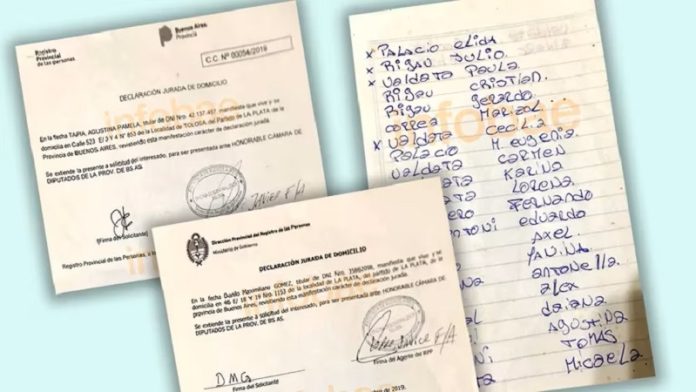 Registro
Provincial
de las personas
Buenos Aires
Provincia
C.C. Nº 00054/2019
DECLARACIÓN JURADA DE DOMICILIO
En la fecha TAPIA, AGUSTINA PAMELA, titular de DNI Nro. 42.137.457, manifiesta que vive y se
domicilia en Calle 523 E/3 Y 4 N° 853 de la Localidad de TOLOSA del Partido de LA PLATA de la
Provincia de BUENOS AIRES, revistiendo esta manifestación carácter de declaración jurada.
Se extiende la presente a solicitud del interesado, para ser presentada ante HONORABLE CÁMARA DE
DIPUTADOS DE LA PROV. DE BS.AS.
(Firma del Solicitante)
Registro Provincial de las Personas,
Dirección Provincial del Registro de las Personas
Ministerio de Gobierno
DECLARACIÓN JURADA DE DOMICILIO
En la fecha Danilo Maximiliano GOMEZ, titular de DNI Nro. 35862098, manifiesta que vive y se
domicilia en 46 E/ 18 Y 19 Nro 1153 de la localidad de LA PLATA, del partido de LA PLATA, de la
provincia de Buenos Aires, revistiendo esta manifestación carácter de declaración jurada.
Se extiende la presente a solicitud del interesado, para ser presentada ante HONORABLE CÁMARA DE
DIPUTADOS DE LA PROV. DE BS AS.
DMG
Firma del Solicitante
Firma del Agente del RPP
de 2019.
x PALACIO ELIDA
x RIGAU JULIO.
x VALDATA PAULA
RIGAU CRISTIAN.
RIGAU GERARDO
CORREA MARISOL
x VALDATA CECILIA
PALACIO M. EUGENIA
VALDATA CARMEN
KARINA
LORENA
FERNANDO
EDUARDO
AXEL
ANTONELLA
ALEX
DAIANA
AGUSTINA
TOMAS
MICAELA
infobae